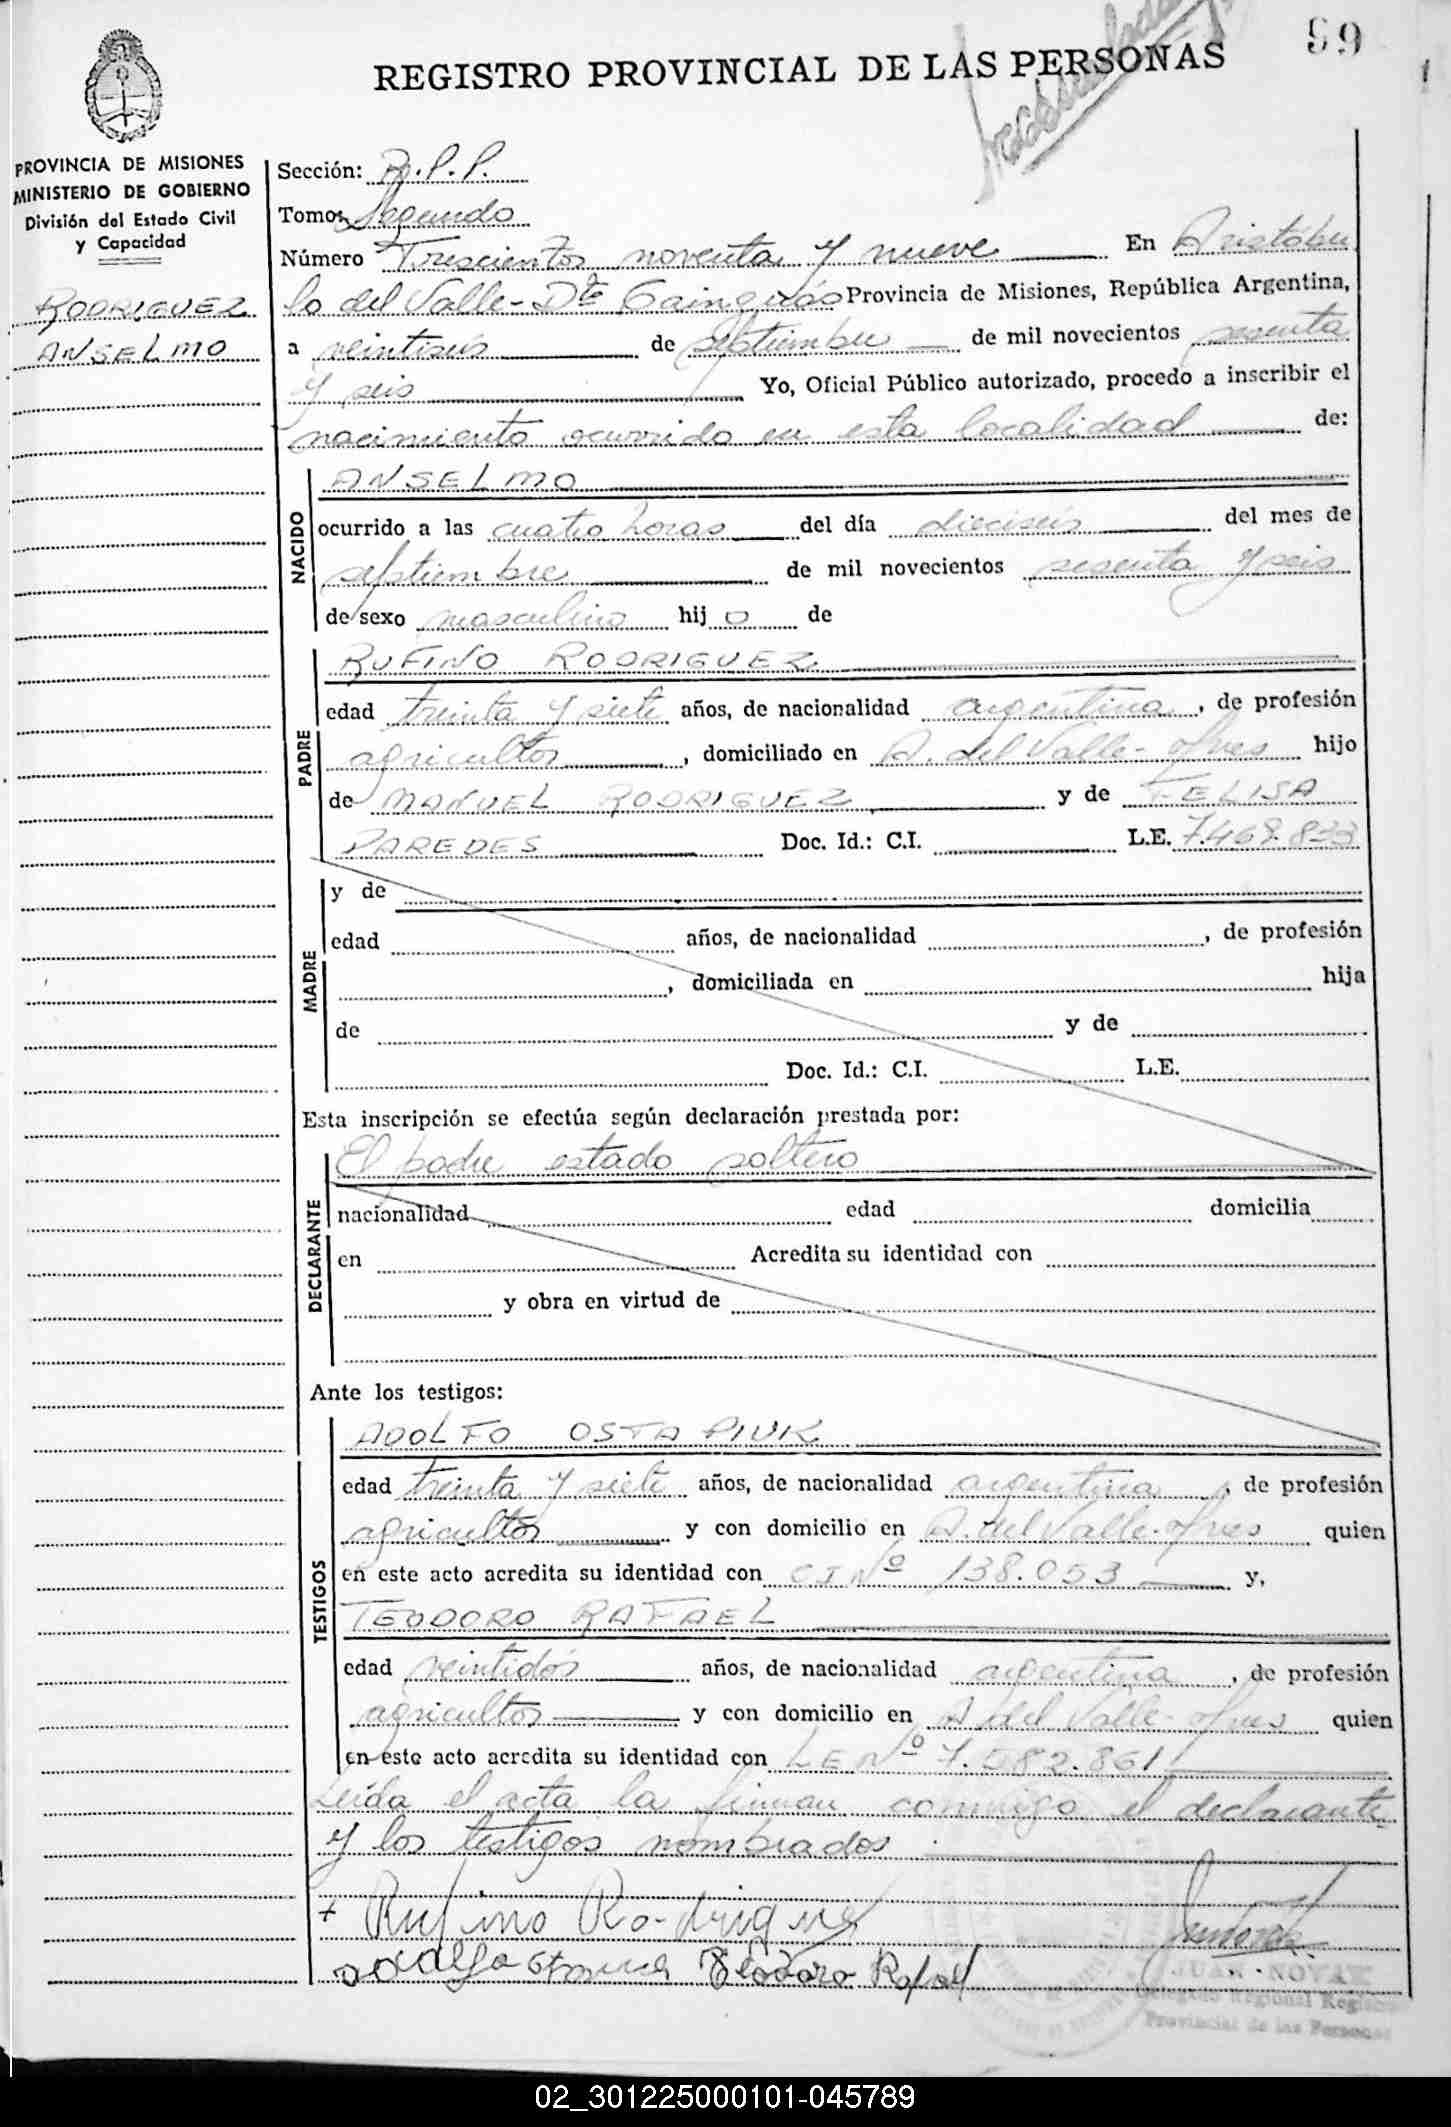 99
REGISTRO PROVINCIAL DE LAS PERSONAS
PROVINCIA DE MISIONES
MINISTERIO DE GOBIERNO
División del Estado Civil
y Capacidad
RODRIGUEZ
ANSELMO
Sección: R.P.P.
Tomo: Segundo
Número Trescientos noventa y nueve En Aristóbu
lo del Valle - Dto Cainguás Provincia de Misiones, República Argentina,
a veintiseis de septiembre de mil novecientos sesenta
y seis Yo, Oficial Público autorizado, procedo a inscribir el
nacimiento ocurrido en esta localidad de:
NACIDO
ANSELMO
ocurrido a las cuatro horas del día dieciseis del mes de
septiembre de mil novecientos sesenta y seis
de sexo masculino hij o de
PADRE
RUFINO RODRIGUEZ
edad treinta y siete años, de nacionalidad argentina, de profesión
agricultor, domiciliado en A. del Valle - Mnes hijo
de MANUEL RODRIGUEZ y de FELISA
PAREDES Doc. Id.: C.I. L.E. 7.469.833
MADRE
y de
edad años, de nacionalidad , de profesión
, domiciliada en hija
de y de
Doc. Id.: C.I. L.E.
Esta inscripción se efectúa según declaración prestada por:
DECLARANTE
El padre estado soltero
nacionalidad edad domicilia
en Acredita su identidad con
y obra en virtud de
Ante los testigos:
TESTIGOS
ADOLFO OSTAPIUK
edad treinta y siete años, de nacionalidad argentina, de profesión
agricultor y con domicilio en A. del Valle - Mnes quien
en este acto acredita su identidad con C I Nº 138.053 y,
TEODORO RAFAEL
edad veintidós años, de nacionalidad argentina, de profesión
agricultor y con domicilio en A. del Valle - Mnes quien
en este acto acredita su identidad con L E Nº 7.582.861
Leída el acta la firman conmigo el declarante
y los testigos nombrados.
+ Rufino Rodriguez
Teodoro Rafael
JUAN NOVAK
Delegado Regional Registro
Provincial de las Personas
02_301225000101-045789